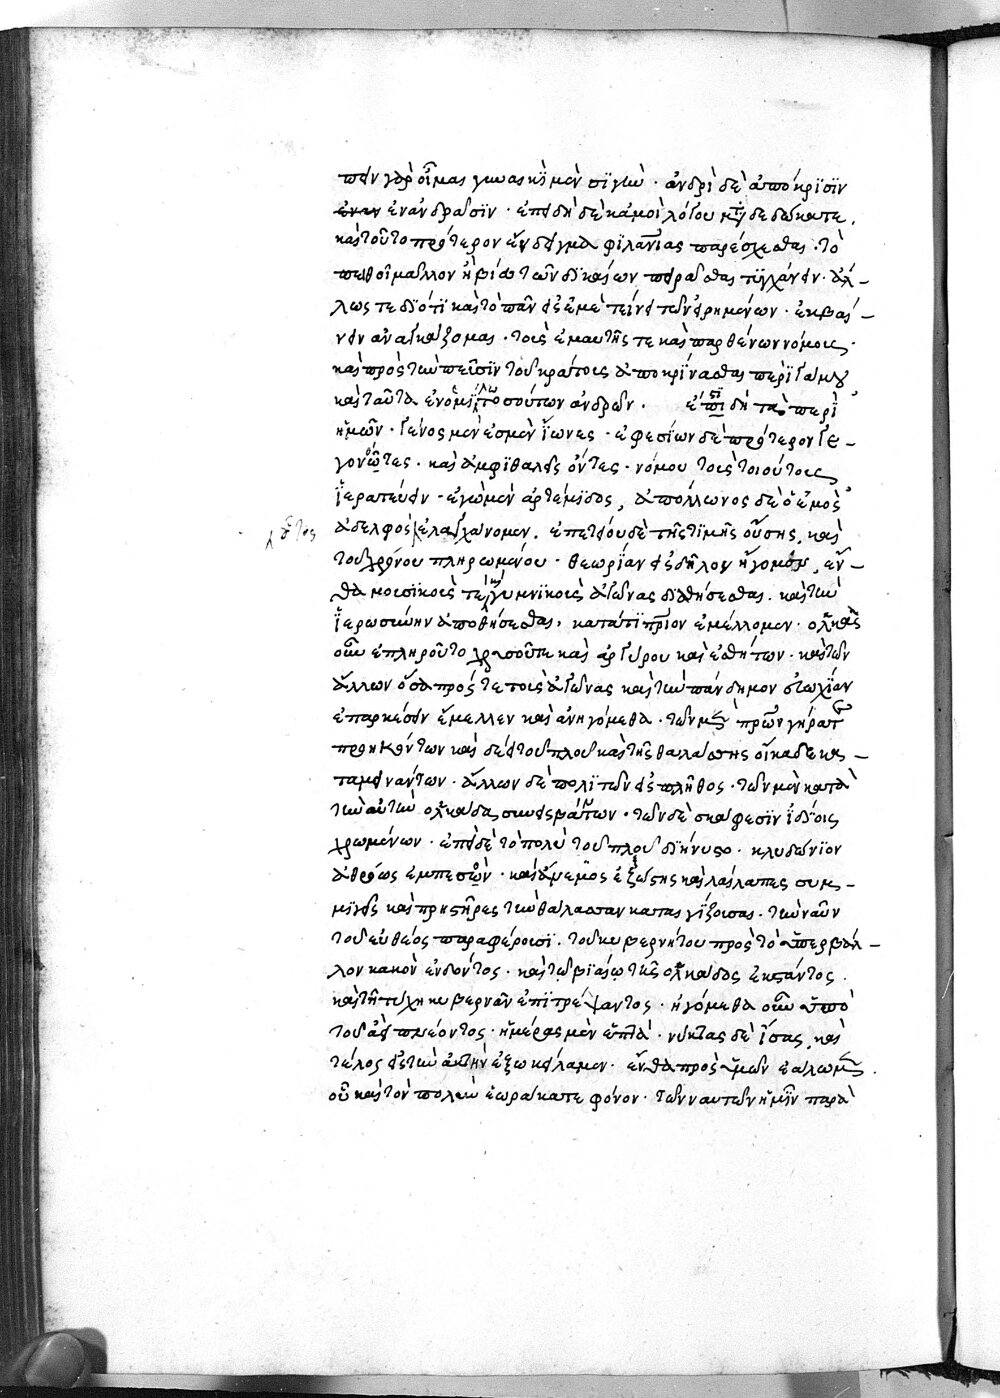 πειν γὰρ οἶμαι γυναικὶ μὲν σϊγὴν · ἀνδρὶ δὲ ἀπόκρϊσϊν
ἐν ἀνδράσϊν · ἐπειδὴ δὲ κἀμοὶ λόγου μεταδεδώκατε,
καὶ τοῦτο πρότερον ἔνδειγμα φϊλανίας παρέσχεσθαι · τὸ
πειθοῖ μᾶλλον ἢ βίᾳ τῶν δικαίων πειρᾶσθαι τυγχάνειν · ἄλ-
λως τε διότϊ καὶ τὸ πᾶν εἰς ἐμὲ τείνει τῶν εἰρημένων · ἐκβαί-
νειν ἀναγκάζομαι · τοὺς ἐμαυτῆς τε καὶ παρθένων νόμους ·
καὶ πρὸς τὴν πεῦσϊν τοῦ κρατοῦντος ἀποκρίνασθαι περὶ γάμου
καὶ ταῦτα ἐν ὁμϊλῳ τοσούτων ἀνδρῶν . ἔχει δὴ τὰ περὶ
ἡμῶν · γένος μέν ἐσμεν ἴωνες · ἐφεσίων δὲ πρότερον γε-
γονότες · καὶ ἀμφϊθαλεῖς ὄντες · νόμου τοὺς τοιούτους
ἱερατεύειν · ἐγὼ μὲν ἀρτέμιδος, ἀπόλλωνος δὲ ὁ ἐμὸς
οὗτος
ἀδελφὸς ἐλαγχάνομεν . ἐπετείου δὲ τῆς τιμῆς οὔσης, καὶ
τοῦ χρόνου πληρωμένου · θεωρίαν εἰς δῆλον ἤγομεν, ἔν-
θα μουσϊκούς τε καὶ γυμνϊκοὺς ἀγῶνας δϊαθήσεσθαι . καὶ τὴν
ἱερωσύνην ἀποθήσεσθαι, κατά τϊ πριον ἐμέλλομεν · ὁλκὰς
οὖν ἐπληροῦτο χρυσοῦ τε καὶ ἀργύρου καὶ ἐσθήτων · καὶ τῶν
ἄλλων ὅσα πρός τε τοὺς ἀγῶνας καὶ τὴν πάνδημον εὐωχίαν
ἐπαρκέσειν ἔμελλεν καὶ ἀνηγόμεθα · τῶν μὲν πρων γήρα τε
προηκόντων καὶ δέει τοῦ πλοῦ καὶ τῆς θαλάσσης οἴκαδε κα-
ταμεινάντων · ἄλλων δὲ πολϊτῶν εἰς πλῆθος · τῶν μὲν κατὰ
τὴν αὐτὴν ὁλκάδα συνεισβάντων · τῶν δὲ σκάφεσϊν ἰδίοις
χρωμένων · ἐπεὶ δὲ τὸ πολὺ τοῦ πλοῦ δϊήνυστο · κλυδώνϊον
ἀθρόως ἐμπεσὸν · καὶ ἄνεμος ἐξώστης καὶ λαίλαπες συμ-
μϊγεῖς καὶ πρηστῆρες τὴν θάλασσαν καταιγίζουσαι · τὴν ναῦν
τοῦ εὐθέος παραφέρουσϊ . τοῦ κυβερνήτου πρὸς τὸ ὑπερβάλ-
λον κακὸν ἐνδόντος · καὶ τῷ βϊαίῳ τῆς ὁλκάδος ἐκστάντος .
καὶ τῇ τύχῃ κυβερνᾶν ἐπϊτρέψαντος · ἠγόμεθα οὖν ὑπὸ
τοῦ ἀεὶ πνέοντος · ἡμέρας μὲν ἑπτὰ · νύκτας δὲ ἴσας, καὶ
τέλος εἰς τὴν ἀκτὴν ἐξωκείλαμεν · ἔνθα πρὸς ὑμῶν ἑάλωμεν .
οὗ καὶ τὸν πολὺν ἑωράκατε φόνον · τῶν ναυτῶν ἡμῖν παρὰ